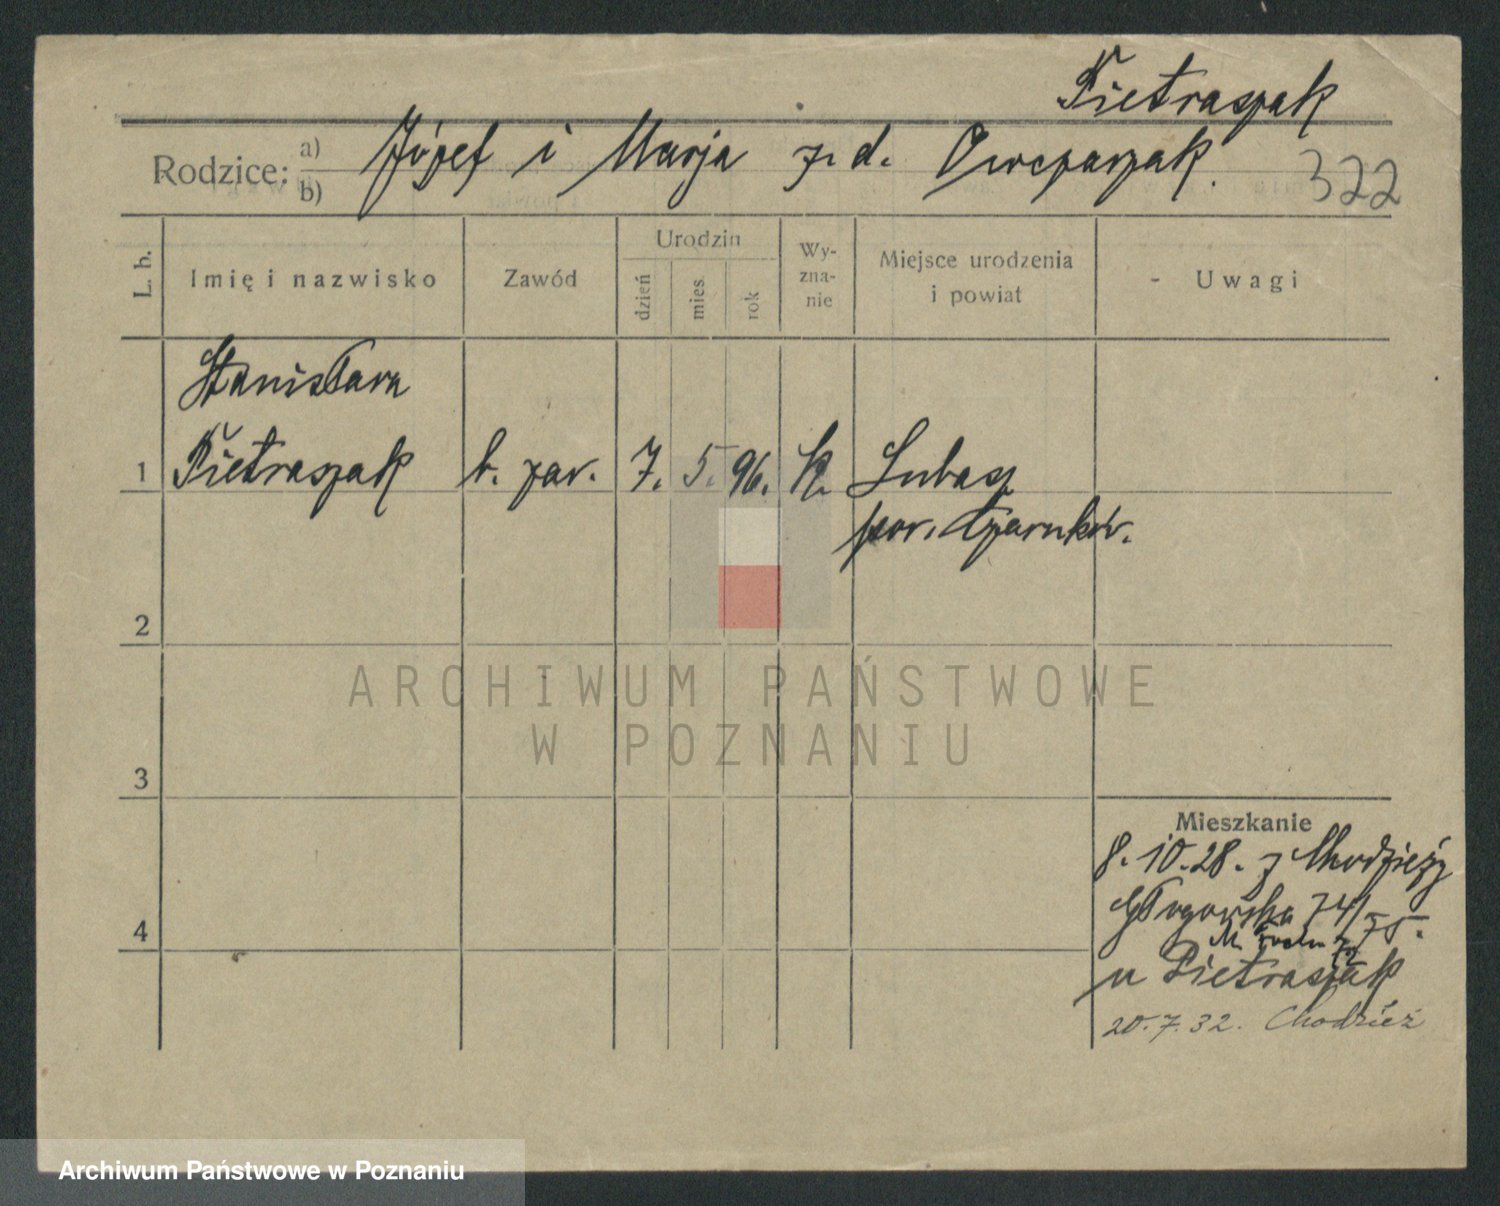 Pietraszak
Rodzice: a) b) Józef i Marja z. d. Owczarzak.
322
L. b.
Imię i nazwisko
Zawód
Urodzin
dzień
mies
rok
Wy-
zna-
nie
Miejsce urodzenia
i powiat
- Uwagi
Stanisława
1 Pietraszak b. zaw. 7. 5. 96. k. Lubasz
pow. Czarnków.
2
ARCHIWUM PAŃSTWOWE
W POZNANIU
3
Mieszkanie
8. 10. 28. z Chodzieży
Głogowska 74/75.
4
u Pietraszak
20. 7. 32. Chodzież
Archiwum Państwowe w Poznaniu